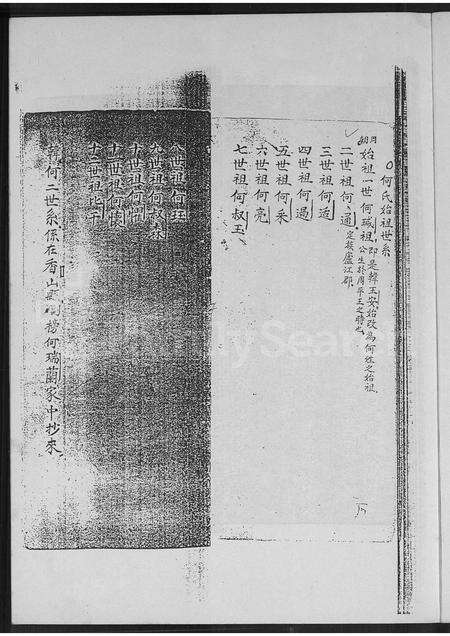 何氏始祖世系
始祖一世何瑊祖即是韓王安始改為何姓之始祖
公生於周平王之時也
二世祖何通定於廬江郡
三世祖何适
四世祖何過
五世祖何采
六世祖何亮
七世祖何叔玉
八世祖何
九世祖何叔森
十世祖何
十一世祖何
十二世祖比干
韓何二世系係在香山何瑞蘭家中抄來
FamilySearch